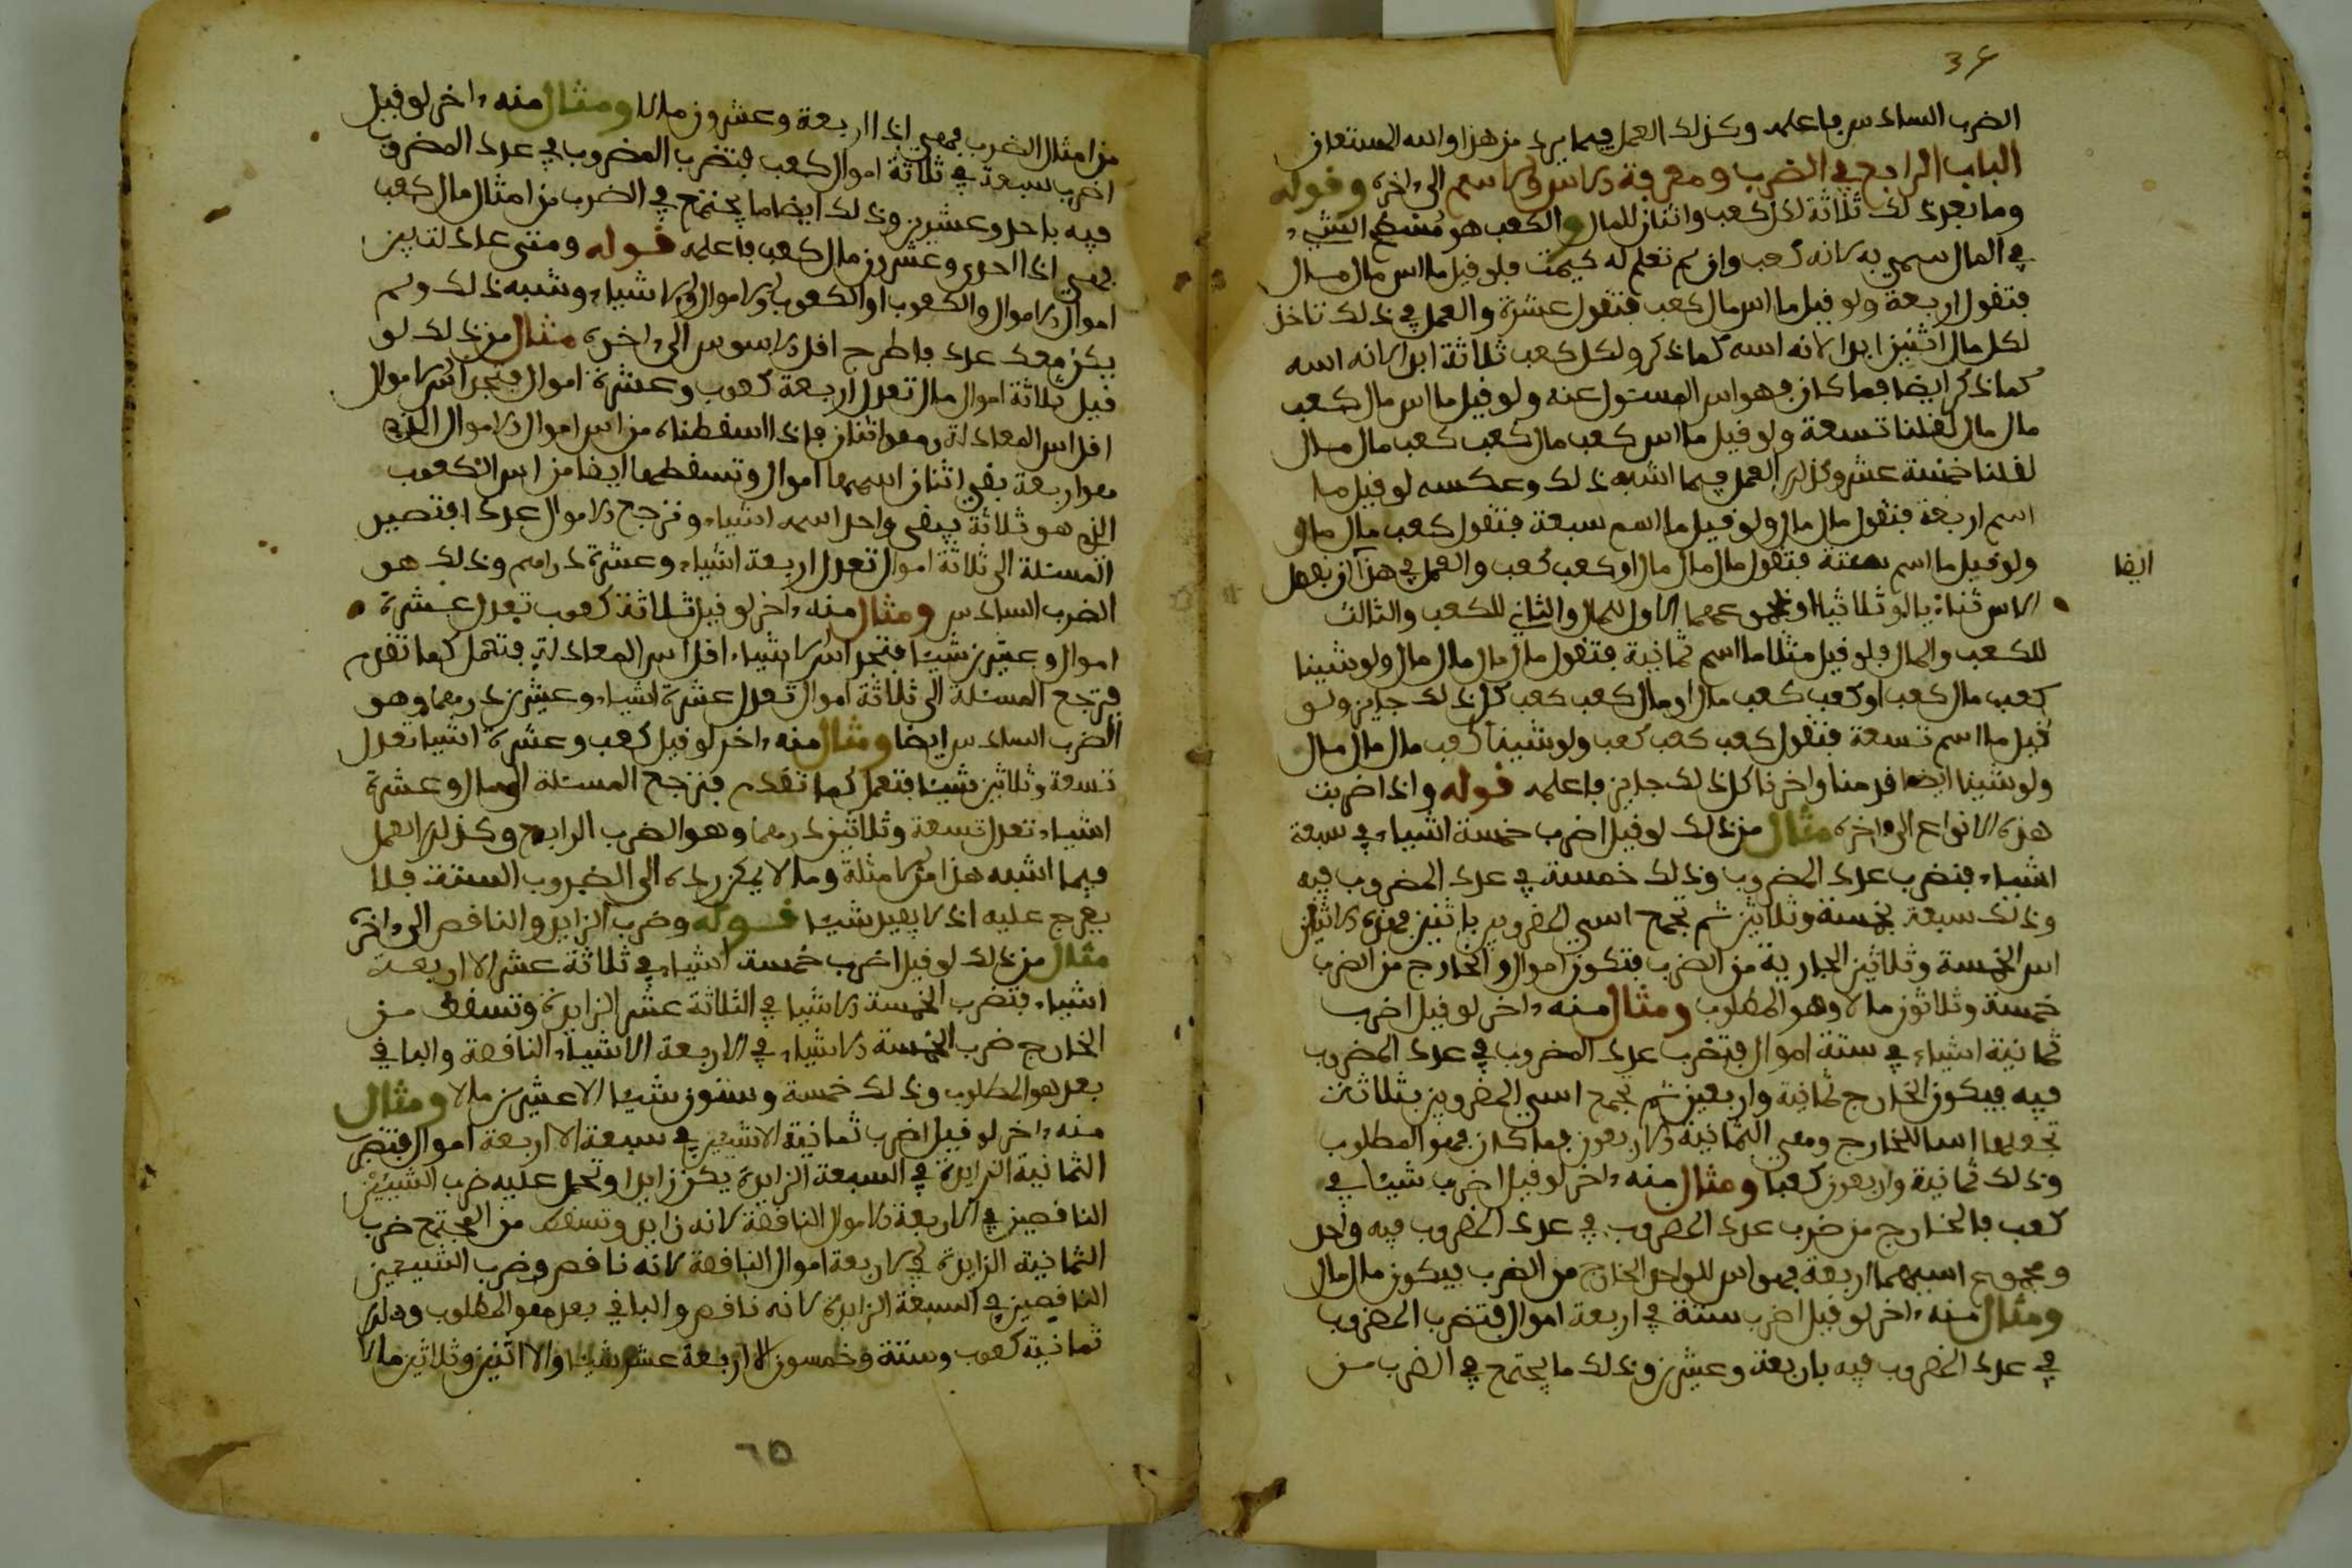 36
الضرب السادس فاعلمه وكذلك العمل فيما يرد من هذا والله المستعان
الباب الرابع في الضرب ومعرفة الاس والاسم الى اخره وقوله
وما بعد ذلك ثلاثة لكل كعب واثنان للمال والكعب هو مسطح الشيء
في المال سمي به لانه كعب وان لم تعلم له كيمت فلو قيل ما اس مال مال
فتقول اربعة ولو قيل ما اس مال كعب فتقول عشرة والعمل في ذلك تاخذ
لكل مال اثنين ابدا لانه اسه كما ذكر ولكل كعب ثلاثة ابدا لانه اسه
كما ذكر ايضا فما كان فهو اس المسئول عنه ولو قيل ما اس مال كعب
مال مال لقلنا تسعة ولو قيل ما اس كعب مال كعب كعب مال مال
لقلنا خمسة عشر وكذلك العمل فيما اشبه ذلك وعكسه لو قيل ما
اسم اربعة فتقول مال مال ولو قيل ما اسم سبعة فتقول كعب مال مال
ولو قيل ما اسم ستة فتقول مال مال مال او كعب كعب والعمل في هذا ان تفصل
ايضا
الاس ثناء يا او ثلاثيا او مجموعهما الاول للمال والثاني للكعب والثالث
للكعب والمال فلو قيل مثلا ما اسم ثمانية فتقول مال مال مال مال ولو شينا
كعب مال كعب او كعب كعب مال او مال كعب كعب كل ذلك جايز ولو
قيل ما اسم تسعة فتقول كعب كعب كعب ولو شينا كعب مال مال مال
ولو شينا ايضا قدمنا واخرنا كل ذلك جايز فاعلمه قوله واذا ضربت
هذه الانواع الى اخره مثال من ذلك لو قيل اضرب خمسة اشياء في سبعة
اشياء فتضرب عدد المضروب وذلك خمسة في عدد المضروب فيه
وذلك سبعة بخمسة وثلاثين ثم تجمع اسي المضروبين باثنين فهذه الاثنان
اس الخمسة وثلاثين الجارية من الضرب فتكون اموال والخارج من الضرب
خمسة وثلاثون مالا وهو المطلوب ومثال منه اخر لو قيل اضرب
ثمانية اشياء في ستة اموال فتضرب عدد المضروب في عدد المضروب
فيه فيكون الخارج ثمانية واربعين ثم تجمع اسي المضروبين بثلاثة
تجعلها اسا للخارج ومعي الثمانية والاربعون فما كان فهو المطلوب
وذلك ثمانية واربعون كعبا ومثال منه اخر لو قيل اضرب شيئا في
كعب فالخارج من ضرب عدد المضروب في عدد المضروب فيه واحد
ومجموع اسيهما اربعة فهو اس للواحد الخارج من الضرب فيكون مال مال
ومثال منه اخر لو قيل اضرب ستة في اربعة اموال فتضرب المضروب
في عدد المضروب فيه باربعة وعشرين وذلك ما يجتمع في الضرب من
من امثال الضرب فهي اذا اربعة وعشرون مالا ومثال منه اخر لو قيل
اضرب سبعة في ثلاثة اموال كعب فتضرب المضروب في عدد المضروب
فيه باحد وعشرين وذلك ايضا ما يجتمع في الضرب من امثال مال كعب
فهي اذا احدى وعشرون مال كعب فاعلمه قوله ومتى عادلت بين
اموال الاموال والكعوب او الكعوب والاموال والاشياء وشبه ذلك ولم
يكن معك عدد فاطرح اقل الاسوس الى اخره مثال من ذلك لو
قيل ثلاثة اموال مال تعدل اربعة كعوب وعشرة اموال فتجد اس الاموال
اقل اس المعادلة وهو اثنان فاذا اسقطناه من اس اموال الاموال الذي
هو اربعة بقي اثنان اسمهما اموال وتسقطهما ايضا من اس الكعوب
الذي هو ثلاثة يبقى واحد اسمه اشياء وترجع الاموال عددا فتصير
المسئلة الى ثلاثة اموال تعدل اربعة اشياء وعشرة دراهم وذلك هو
الضرب السادس ومثال منه اخر لو قيل ثلاثة كعوب تعدل عشرة
اموال وعشرين شيئا فتجد اس الاشياء اقل اس المعادلة فتعمل كما تقدم
فترجع المسئلة الى ثلاثة اموال تعدل عشرة اشياء وعشرين درهما وهو
الضرب السادس ايضا ومثال منه اخر لو قيل كعب وعشرة اشيا تعدل
تسعة وثلاثين شيئا فتعمل كما تقدم فترجع المسئلة الى مال وعشرة
اشياء تعدل تسعة وثلاثين درهما وهو الضرب الرابع وكذلك العمل
فيما اشبه هذا من الامثلة وما لا يمكن رده الى الضروب الستة فلا
يعرج عليه اذ لا يفيد شيئا قوله وضرب الزايد والناقص الى اخره
مثال من ذلك لو قيل اضرب خمسة اشياء في ثلاثة عشر الا اربعة
اشياء فتضرب الخمسة الاشيا في الثلاثة عشر الزايدة وتسقط من
الخارج ضرب الخمسة الاشياء في الاربعة الاشياء الناقصة والباقي
بعد هو المطلوب وذلك خمسة وستون شيئا الا عشرين مالا ومثال
منه اخر لو قيل اضرب ثمانية الا شيئين في سبعة الا اربعة اموال فتضرب
الثمانية الزايدة في السبعة الزايدة يكن زايدا وتحمل عليه ضرب الشيئين
الناقصين في الاربعة الاموال الناقصة لانه زايد وتسقط من المجتمع ضرب
الثمانية الزايدة في الاربعة اموال الناقصة لانه ناقص وضرب الشيئين
الناقصين في السبعة الزايدة لانه ناقص والباقي بعد هو المطلوب وذلك
ثمانية كعوب وستة وخمسون الا اربعة عشر شيئا والا اثنين وثلاثين مالا
٦٥